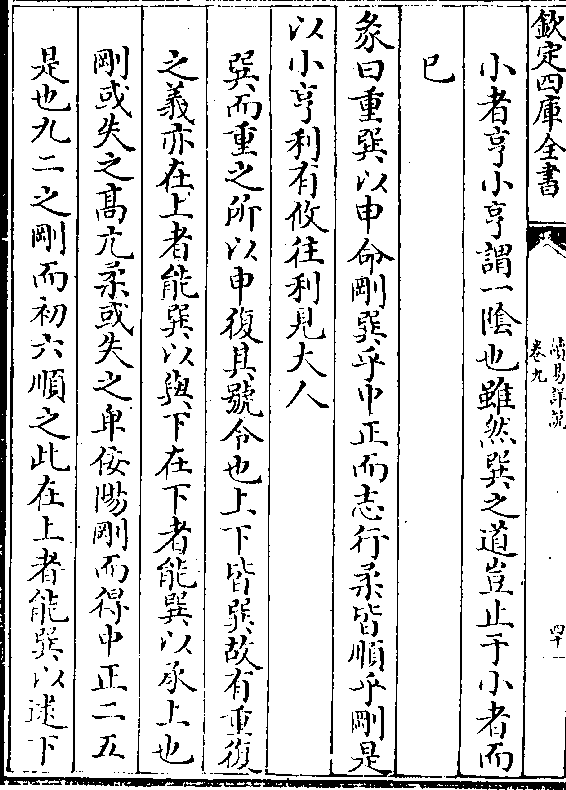 欽定四庫全書
讀易詳說
卷九
四十一
小者亨小亨謂一陰也雖然巽之道豈止于小者而
已
彖曰重巽以申命剛巽乎中正而志行柔皆順乎剛是
以小亨利有攸往利見大人
巽而重之所以申復其號令也上下皆巽故有重復
之義亦在上者能巽以與下在下者能巽以承上也
剛或失之髙亢柔或失之卑佞陽剛而得中正二五
是也九二之剛而初六順之此在上者能巽以逮下